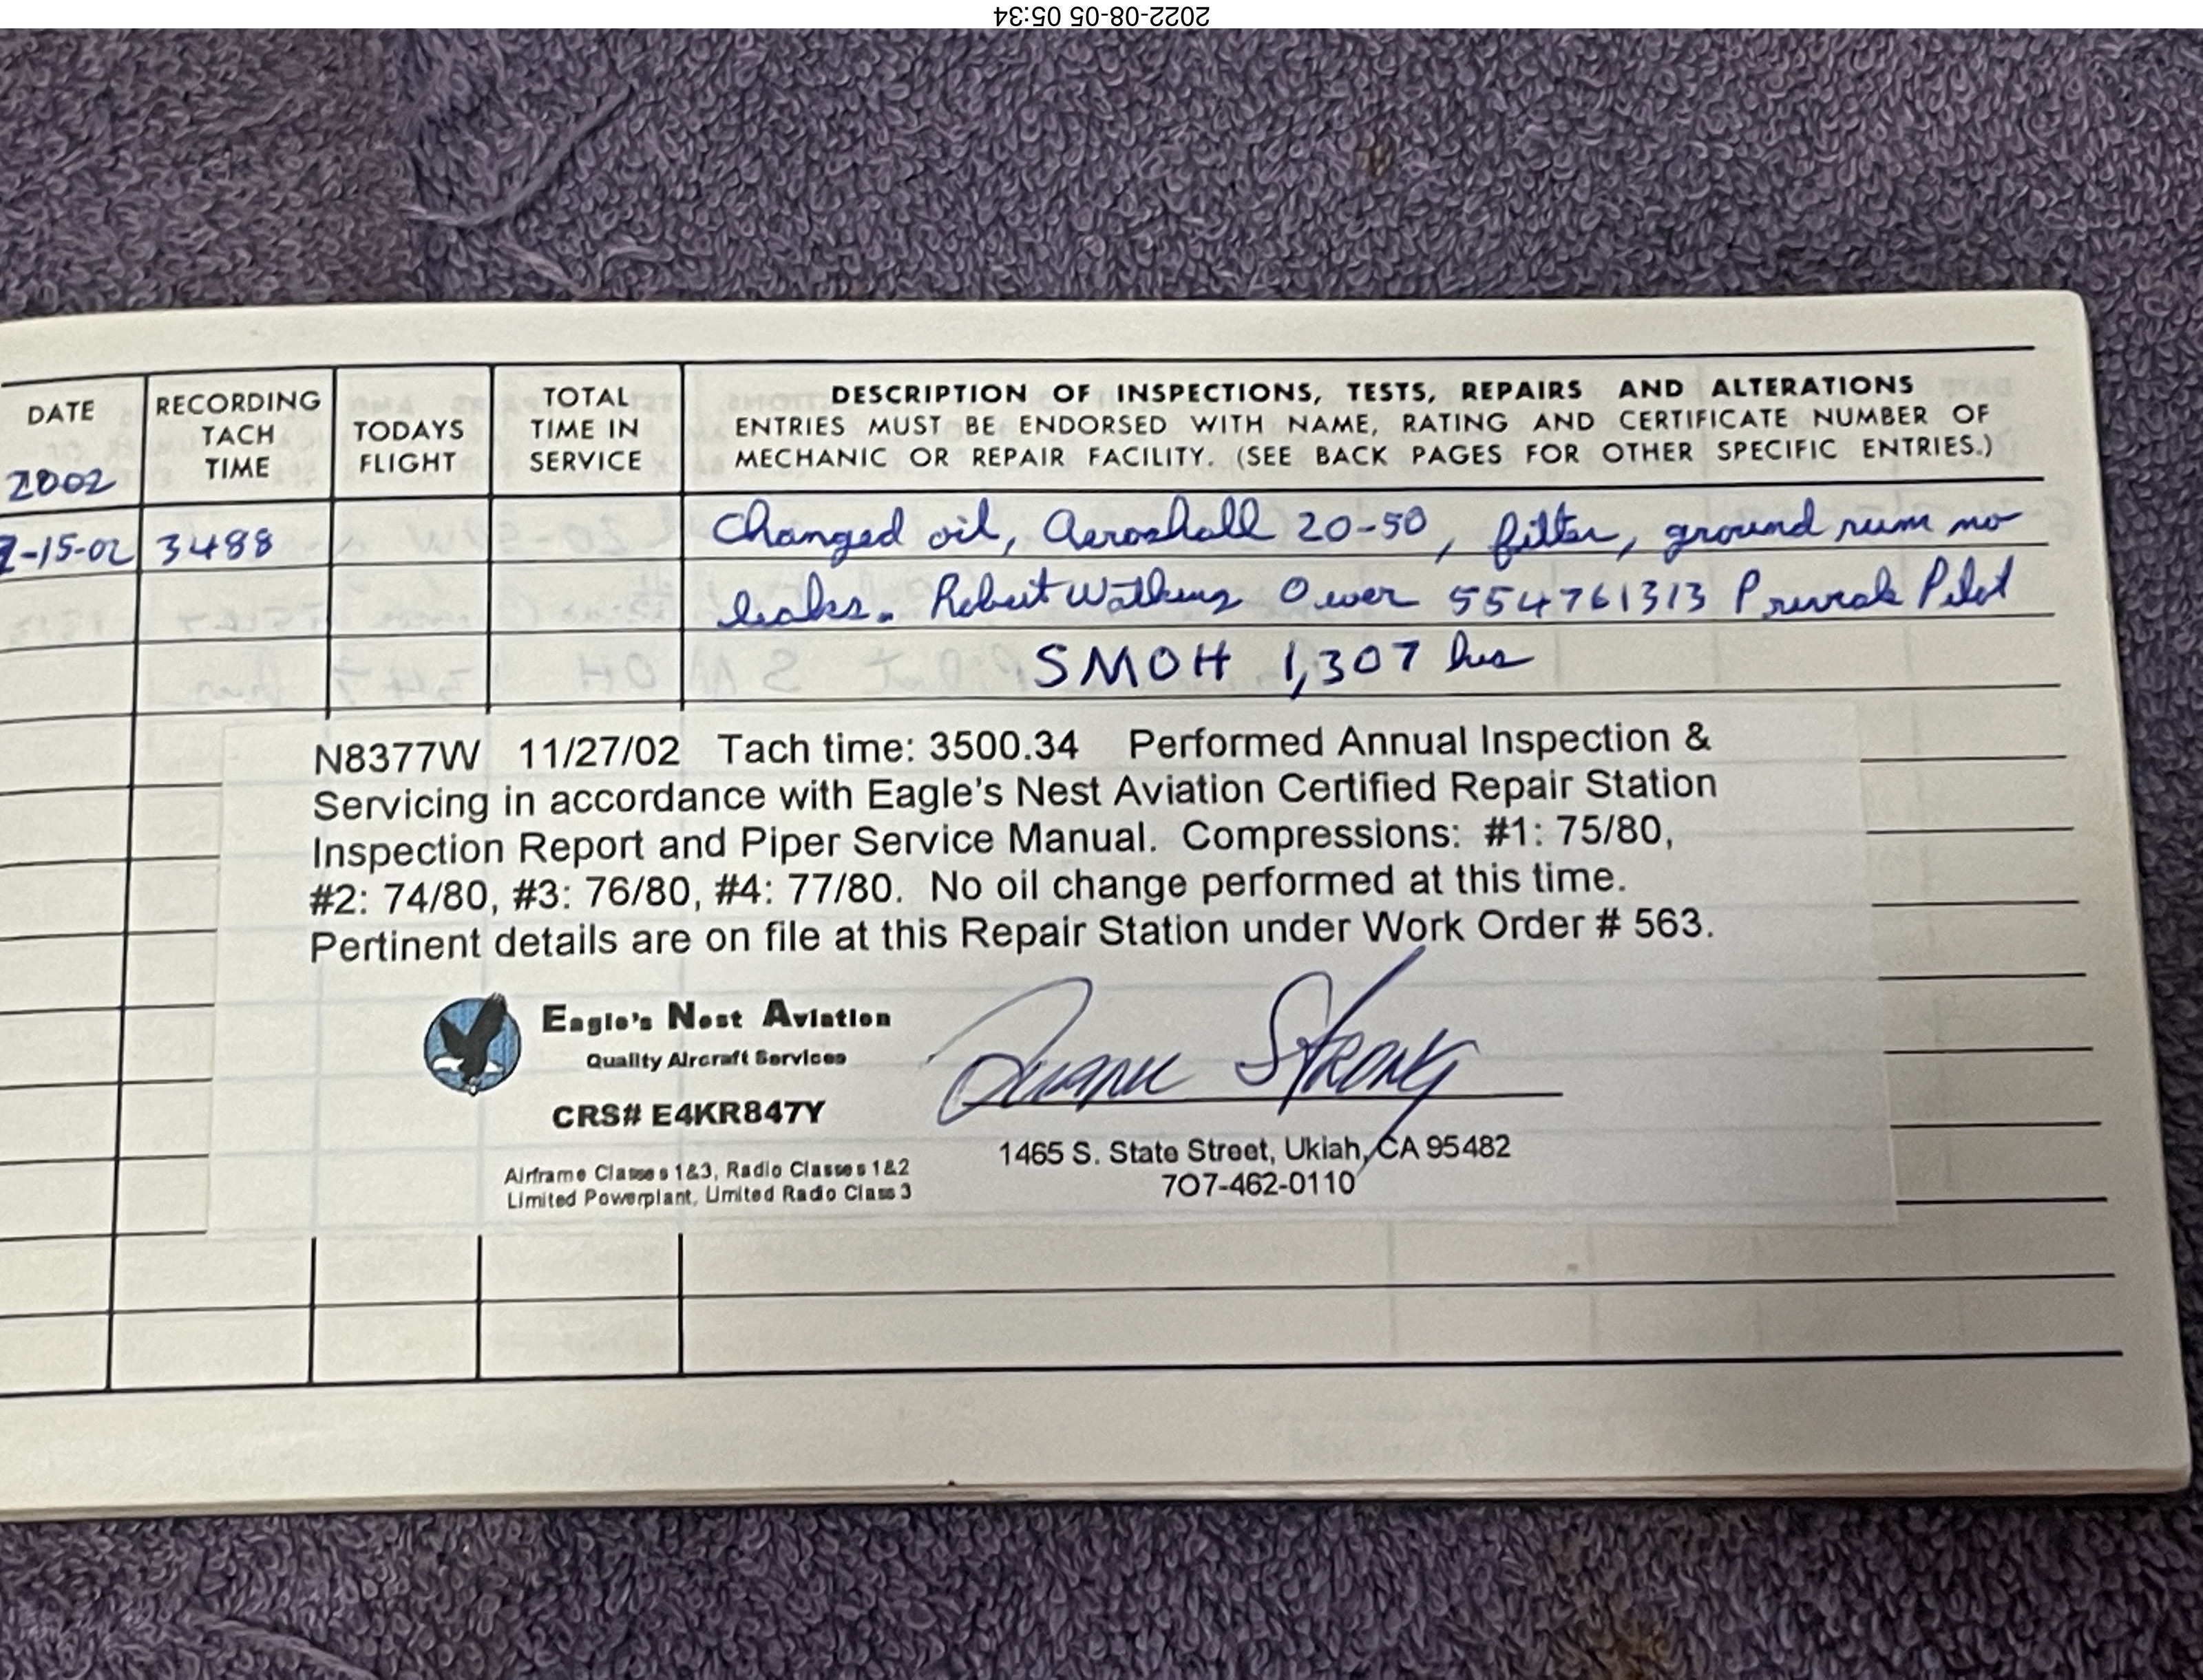 2022-08-05 05:34
DATE
RECORDING TACH TIME
TODAYS FLIGHT
TOTAL TIME IN SERVICE
DESCRIPTION OF INSPECTIONS, TESTS, REPAIRS AND ALTERATIONS
ENTRIES MUST BE ENDORSED WITH NAME, RATING AND CERTIFICATE NUMBER OF
MECHANIC OR REPAIR FACILITY. (SEE BACK PAGES FOR OTHER SPECIFIC ENTRIES.)
2002
-15-02 3488 Changed oil, Aeroshell 20-50, filter, ground run no
leaks. Robert Watkins Owner 554761313 Private Pilot
SMOH 1,307 hrs
N8377W 11/27/02 Tach time: 3500.34 Performed Annual Inspection &
Servicing in accordance with Eagle's Nest Aviation Certified Repair Station
Inspection Report and Piper Service Manual. Compressions: #1: 75/80,
#2: 74/80, #3: 76/80, #4: 77/80. No oil change performed at this time.
Pertinent details are on file at this Repair Station under Work Order # 563.
Eagle's Nest Aviation
Quality Aircraft Services
CRS# E4KR847Y
Airframe Classes 1&3, Radio Classes 1&2
Limited Powerplant, Limited Radio Class 3
Duane Strong
1465 S. State Street, Ukiah, CA 95482
707-462-0110